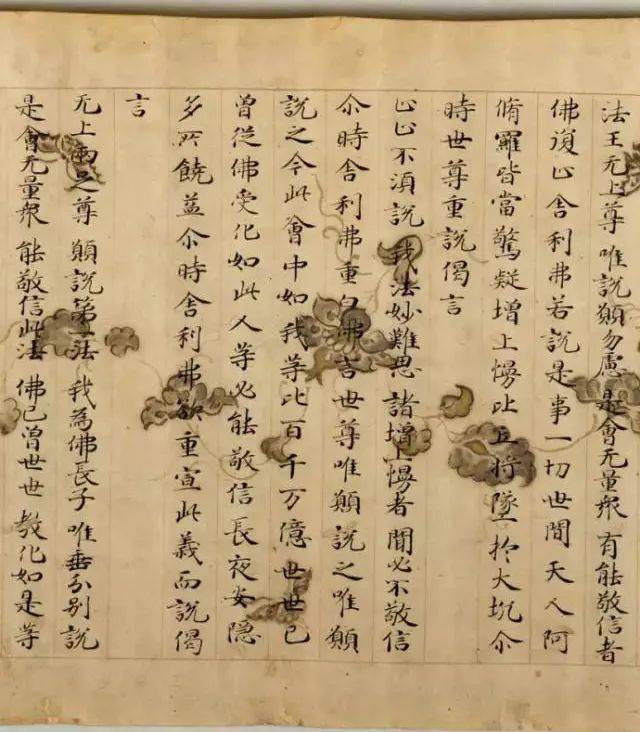 法王无上尊 唯說願勿慮 是會无量衆 有能敬信者
佛復止舍利弗若說是事一切世間天人阿
脩羅皆當驚疑增上慢比丘將墜於大坑尒
時世尊重說偈言
止止不湏說 我法妙難思 諸增上慢者 聞必不敬信
尒時舍利弗重白佛言世尊唯願說之唯願
說之今此會中如我等比百千万億世世已
曾從佛受化如此人等必能敬信長夜安隱
多所饒益尒時舍利弗欲重宣此義而說偈
言
无上兩足尊 願說第一法 我為佛長子 唯垂分別說
是會无量衆 能敬信此法 佛已曾世世 教化如是等